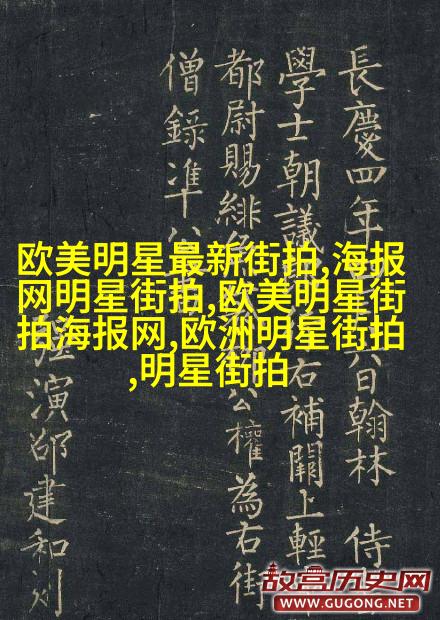 長慶四年 六日翰林 侍
學士朝議 右補闕上輕
都尉賜緋 公權為右街
僧錄準公
演邵建和刻
欧美明星最新街拍,海报
网明星街拍,欧美明星街
拍海报网,欧洲明星街拍
,明星街拍
故宫历史网
WWW.GUGONG.NET